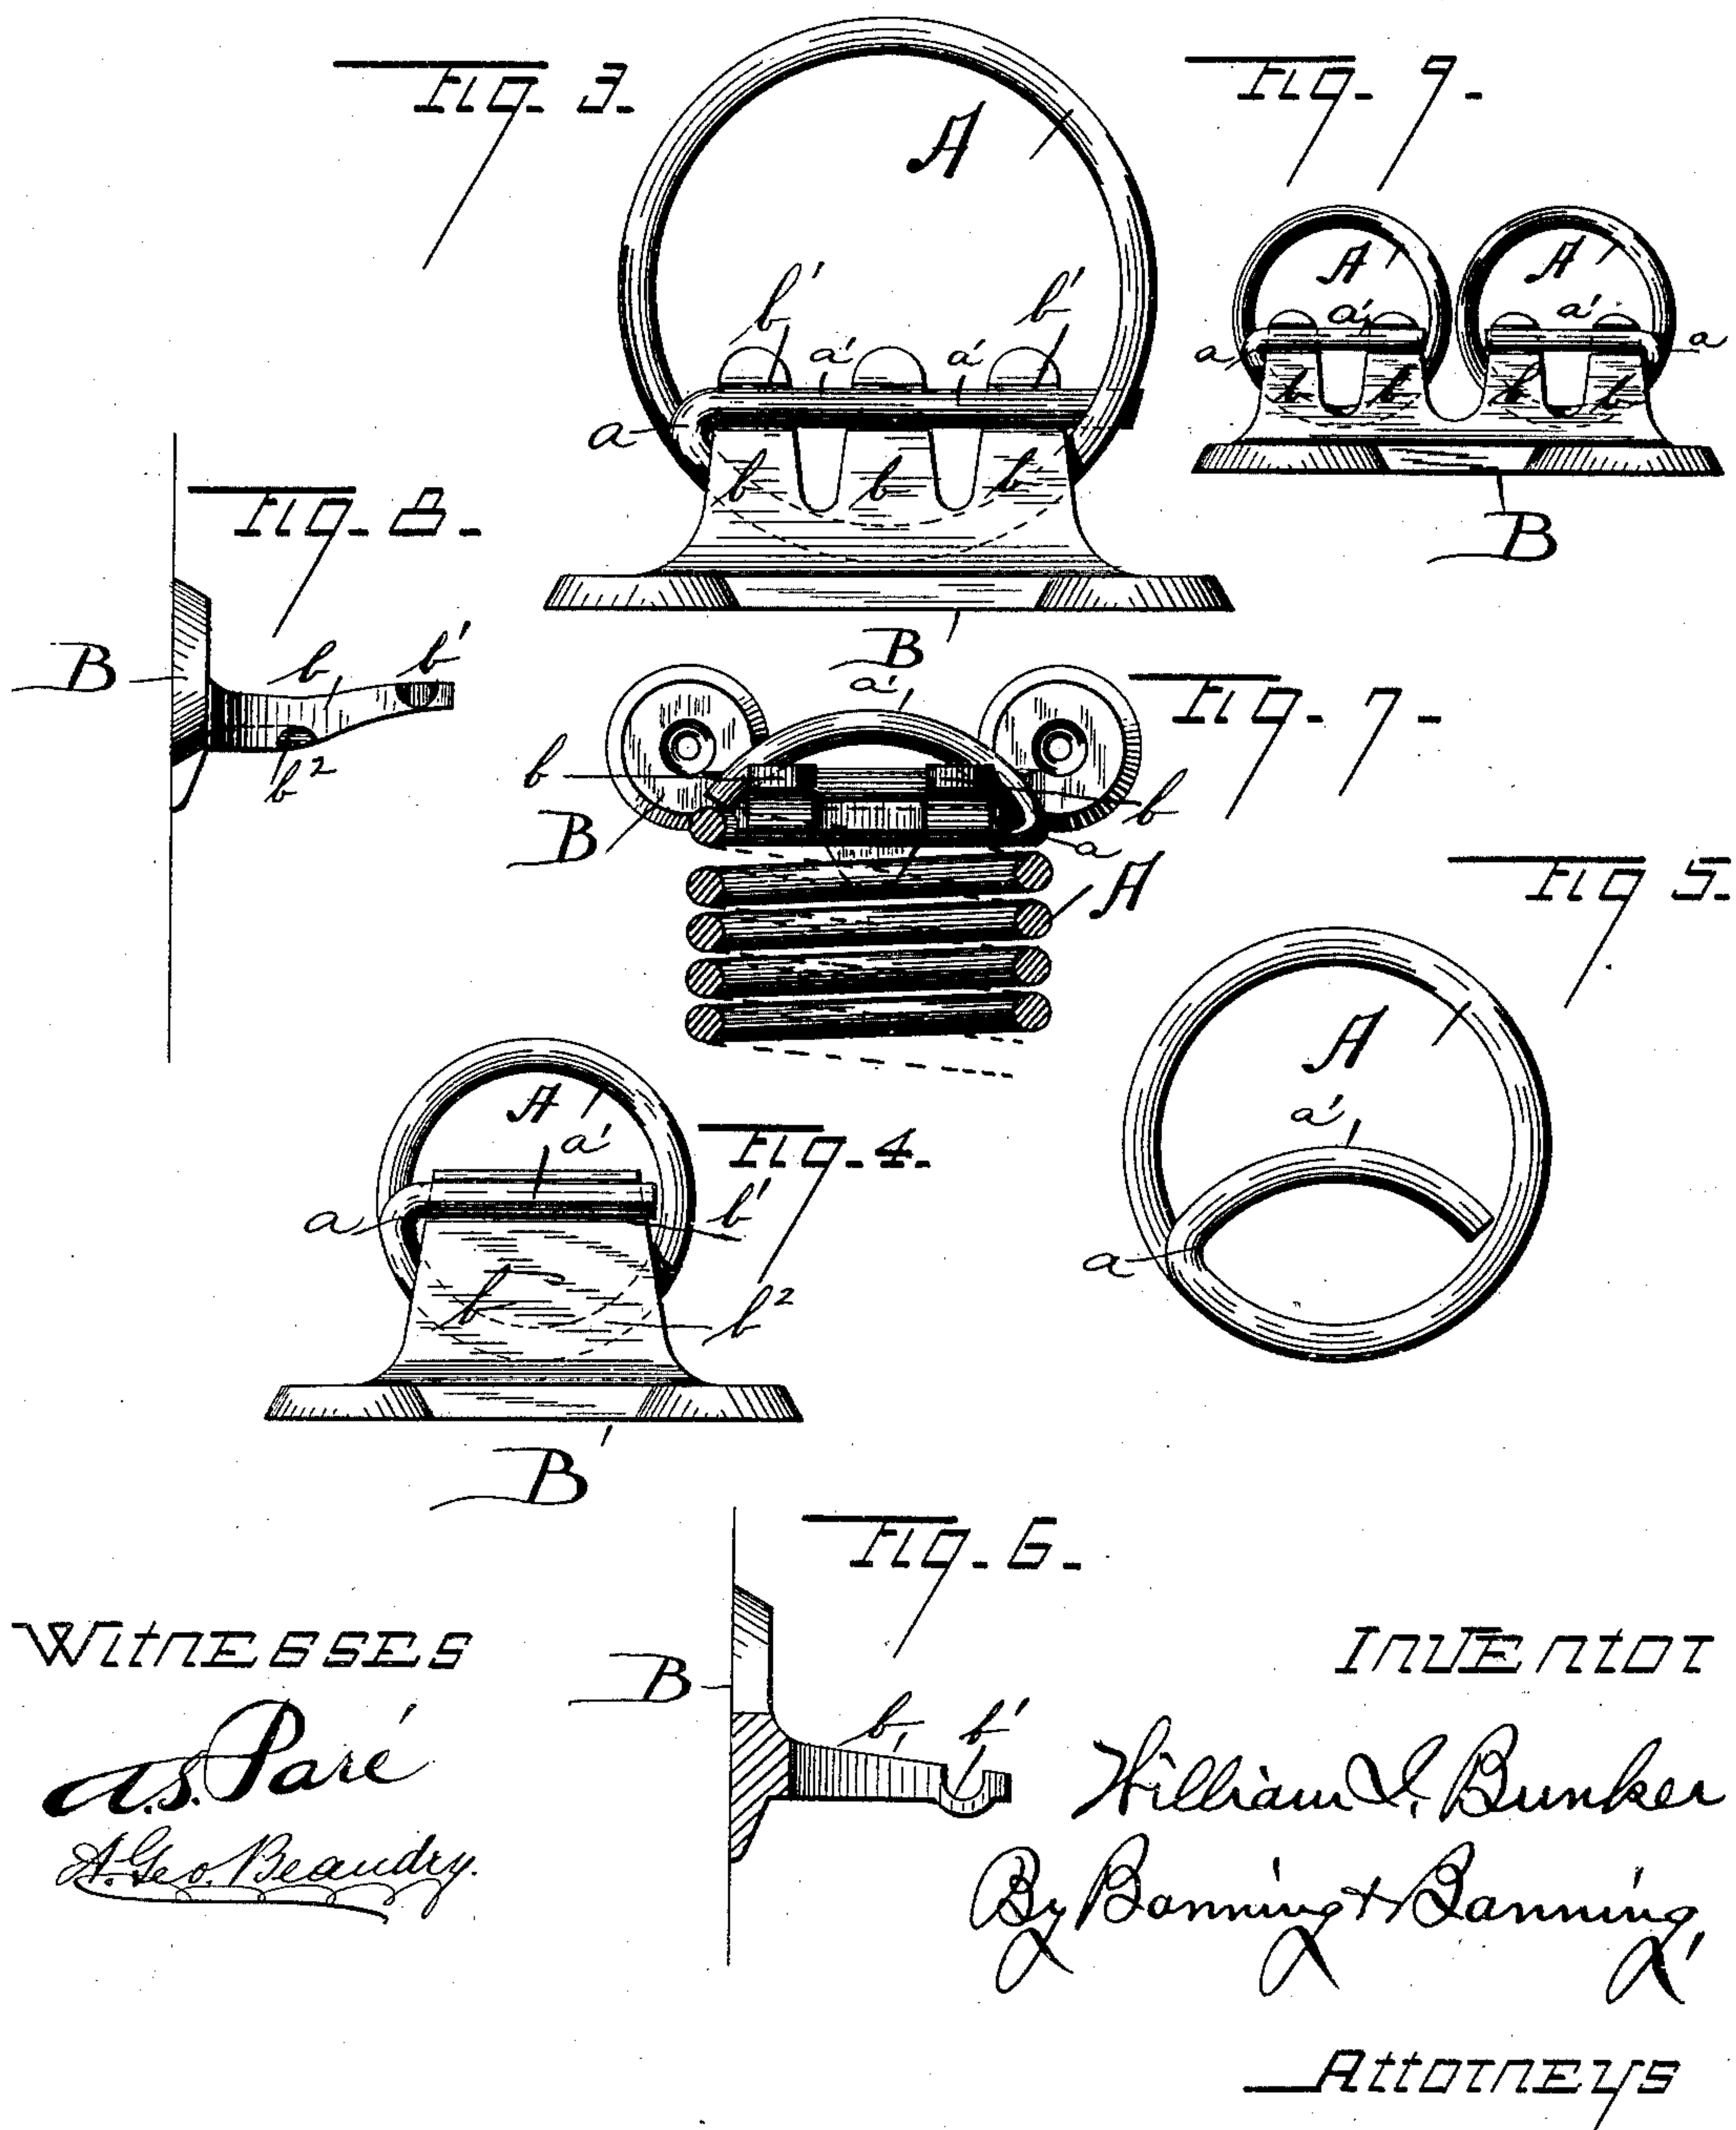 Fig. 3.
A
b' b'
a' a'
a
b b b
B
Fig. 9.
A A
a' a'
a a
b b b b
B
Fig. 8.
B
b b'
b2
Fig. 7.
a'
b b
B
a
A
Fig 5.
A
a'
a
Fig. 4.
A
a'
a
b'
b
b2
B
Fig. 6.
B
b b'
Witnesses
A.S. Paré
A. Geo. Beaudry.
Inventor
William I. Bunker
By Banning & Banning,
Attorneys